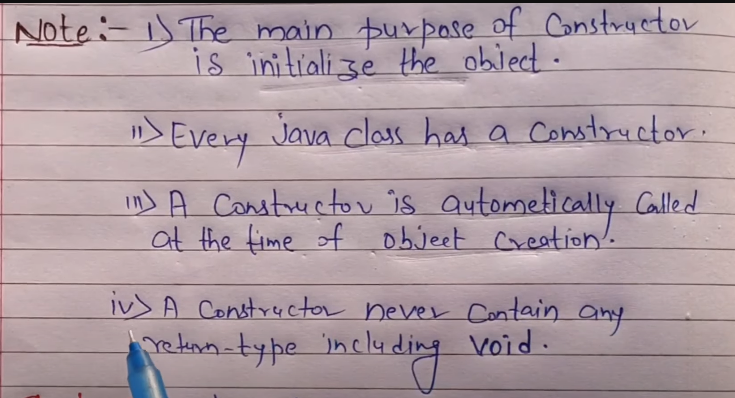 Note:- i) The main purpose of Constructor
is initialize the object.
ii) Every java class has a Constructor.
iii) A Constructor is autometically Called
at the time of object Creation.
iv) A Constructor never Contain any
return-type including void.